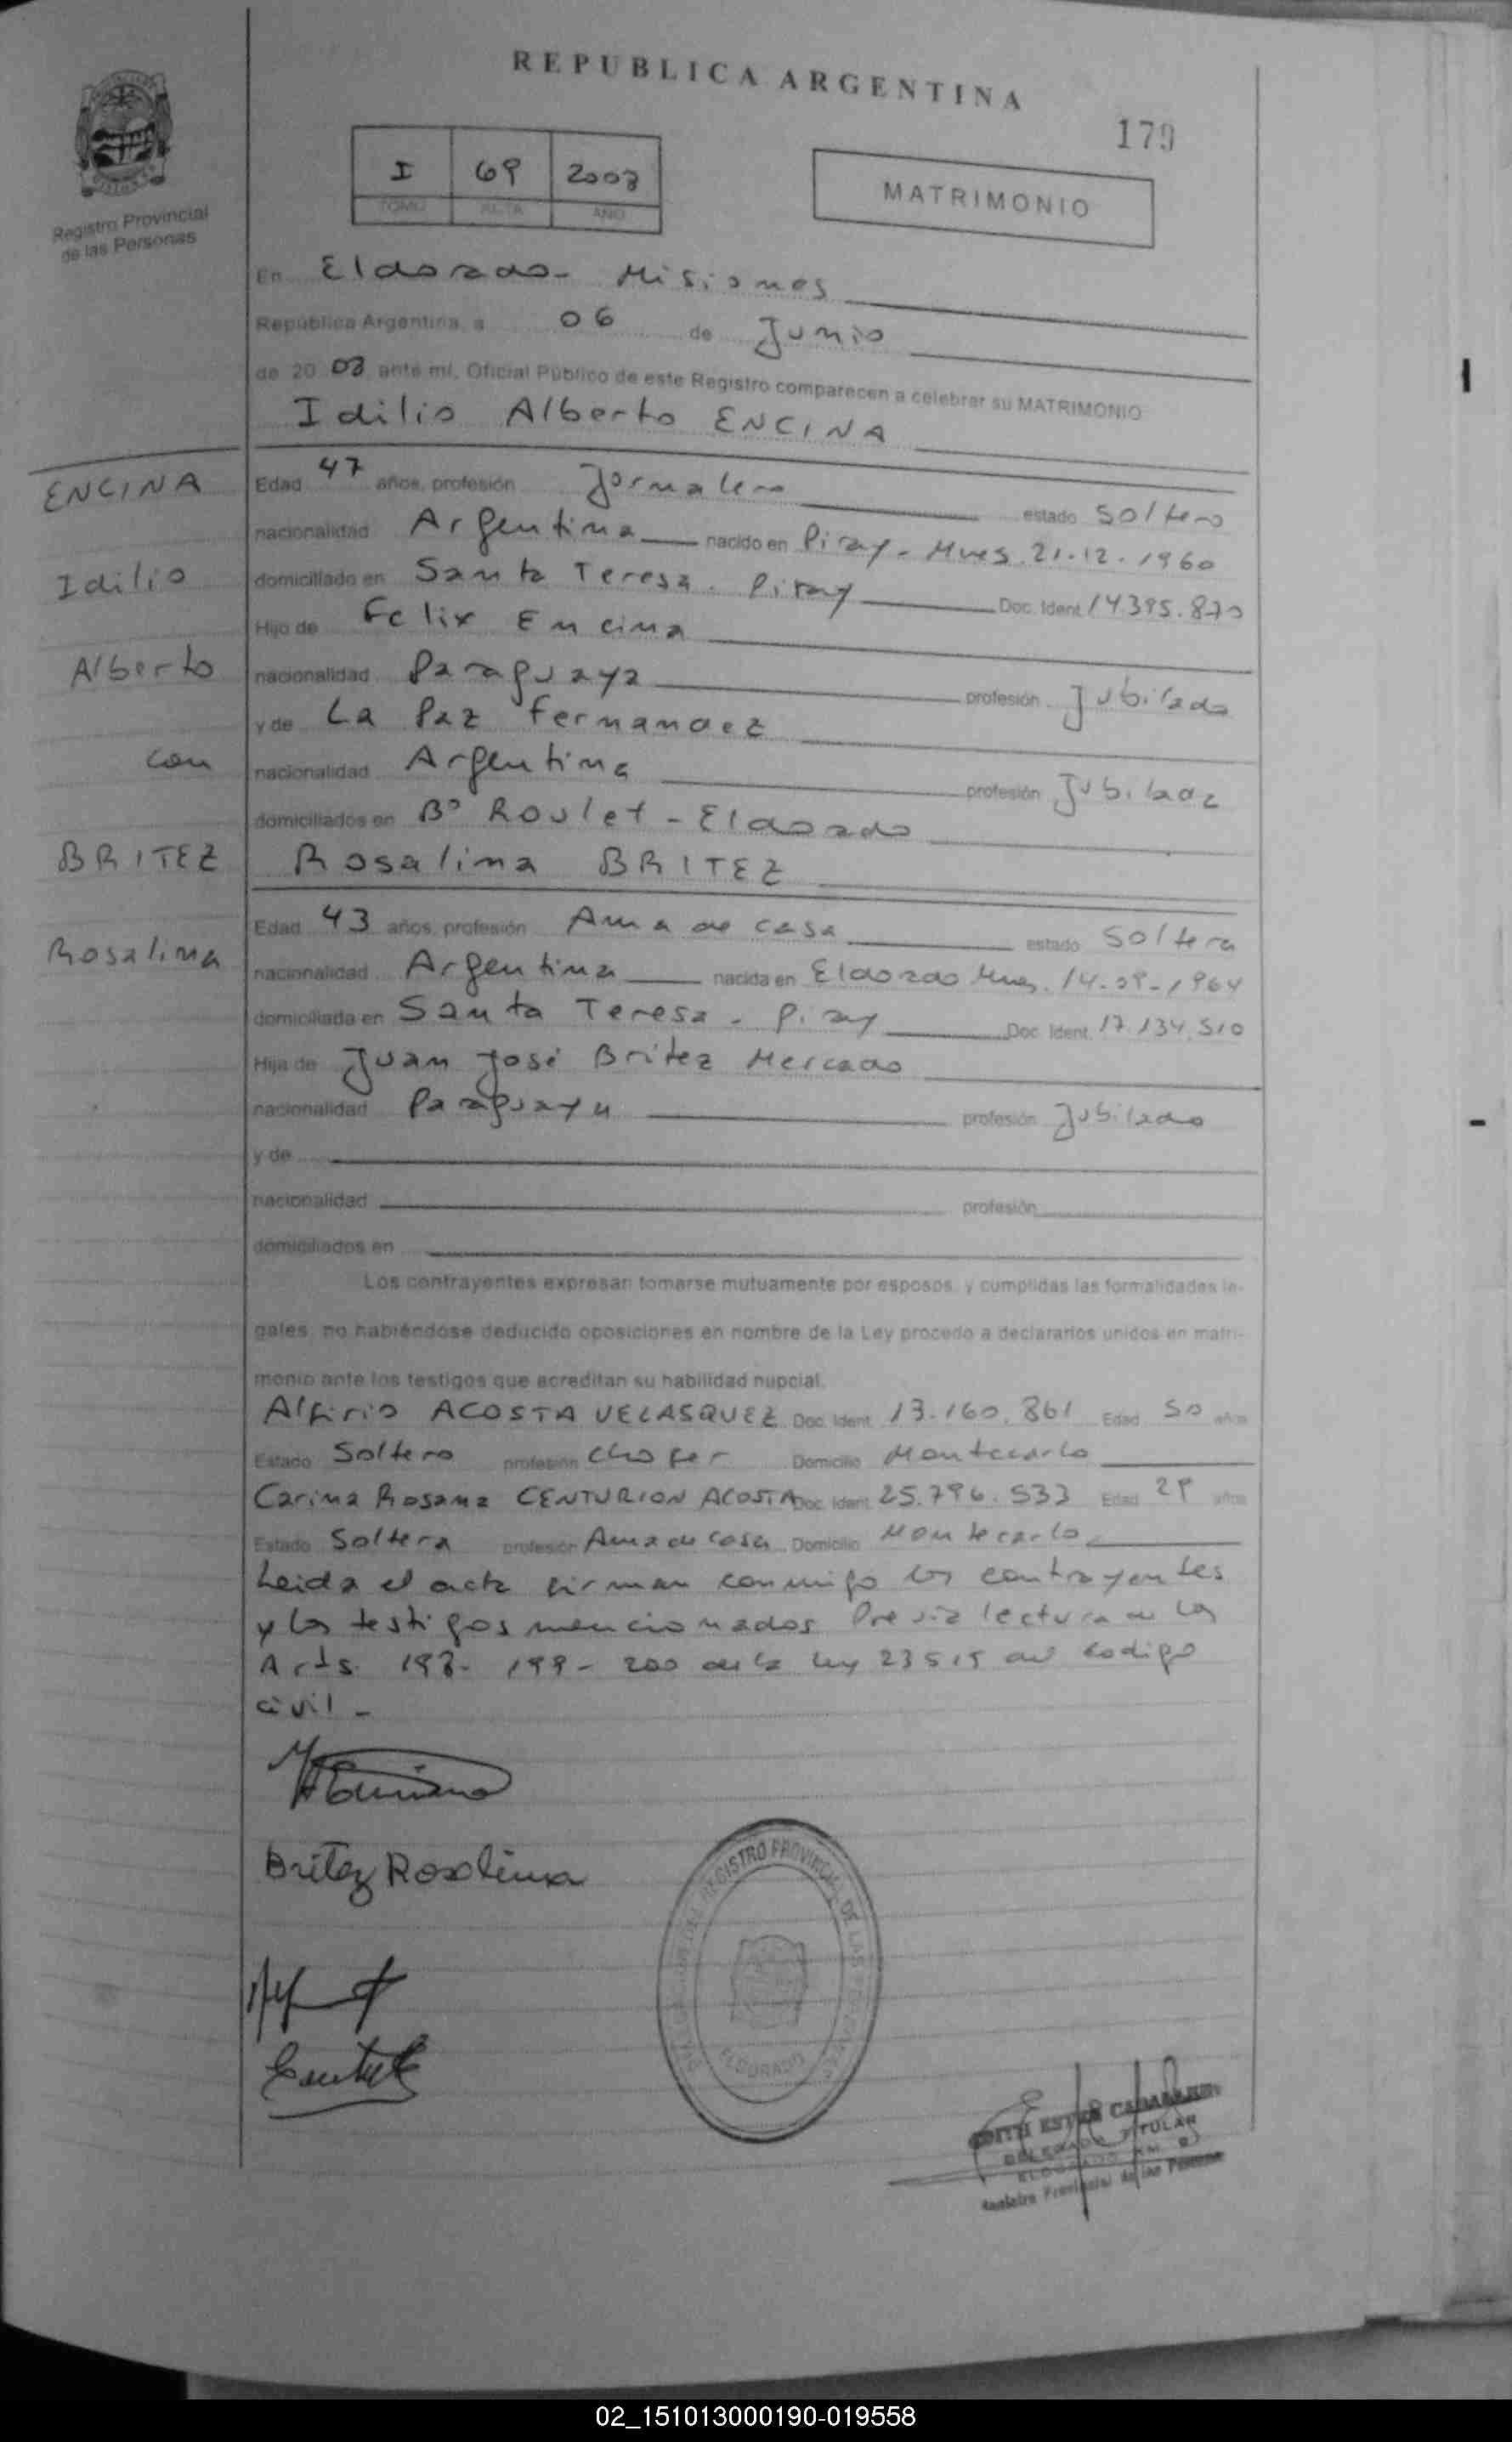 REPUBLICA ARGENTINA
179
I 69 2008
TOMO ACTA AÑO
MATRIMONIO
Registro Provincial
de las Personas
En Eldorado - Misiones
República Argentina, a 06 de Junio
de 20 08 ante mí, Oficial Público de este Registro comparecen a celebrar su MATRIMONIO
Idilio Alberto ENCINA
ENCINA
Idilio
Alberto
con
BRITEZ
Rosalina
Edad 47 años, profesión Jornalero estado Soltero
nacionalidad Argentina nacido en Piray - Mnes. 21-12-1960
domiciliado en Santa Teresa - Piray Doc. Ident. 14.395.870
Hijo de Felix Encina
nacionalidad Paraguaya profesión Jubilado
y de La Paz Fernandez
nacionalidad Argentina profesión Jubilada
domiciliados en B° Roulet - Eldorado
Rosalina BRITEZ
Edad 43 años, profesión Ama de casa estado Soltera
nacionalidad Argentina nacida en Eldorado Mnes. 14-09-1964
domiciliada en Santa Teresa - Piray Doc. Ident. 17.134.510
Hija de Juan José Britez Mercado
nacionalidad Paraguaya profesión Jubilado
y de
nacionalidad profesión
domiciliados en
Los contrayentes expresan tomarse mutuamente por esposos, y cumplidas las formalidades le-
gales, no habiéndose deducido oposiciones en nombre de la Ley procedo a declararlos unidos en matri-
monio ante los testigos que acreditan su habilidad nupcial.
Alfirio ACOSTA VELASQUEZ Doc. Ident. 13.160.861 Edad 50 años
Estado Soltero profesión Chofer Domicilio Montecarlo
Carina Rosana CENTURION ACOSTA Doc. Ident. 25.796.533 Edad 29 años
Estado Soltera profesión Ama de casa Domicilio Montecarlo
Leida el acta firman conmigo los contrayentes
y los testigos mencionados Previa lectura de los
Arts. 198- 199- 200 de la ley 23515 del codigo
civil -
Britez Rosalina
REGISTRO PROVINCIAL DE LAS PERSONAS
ELDORADO
EDITH ESTER
DELEGADO TITULAR
ELDORADO KM. 9
Registro Provincial de las Personas
02_151013000190-019558